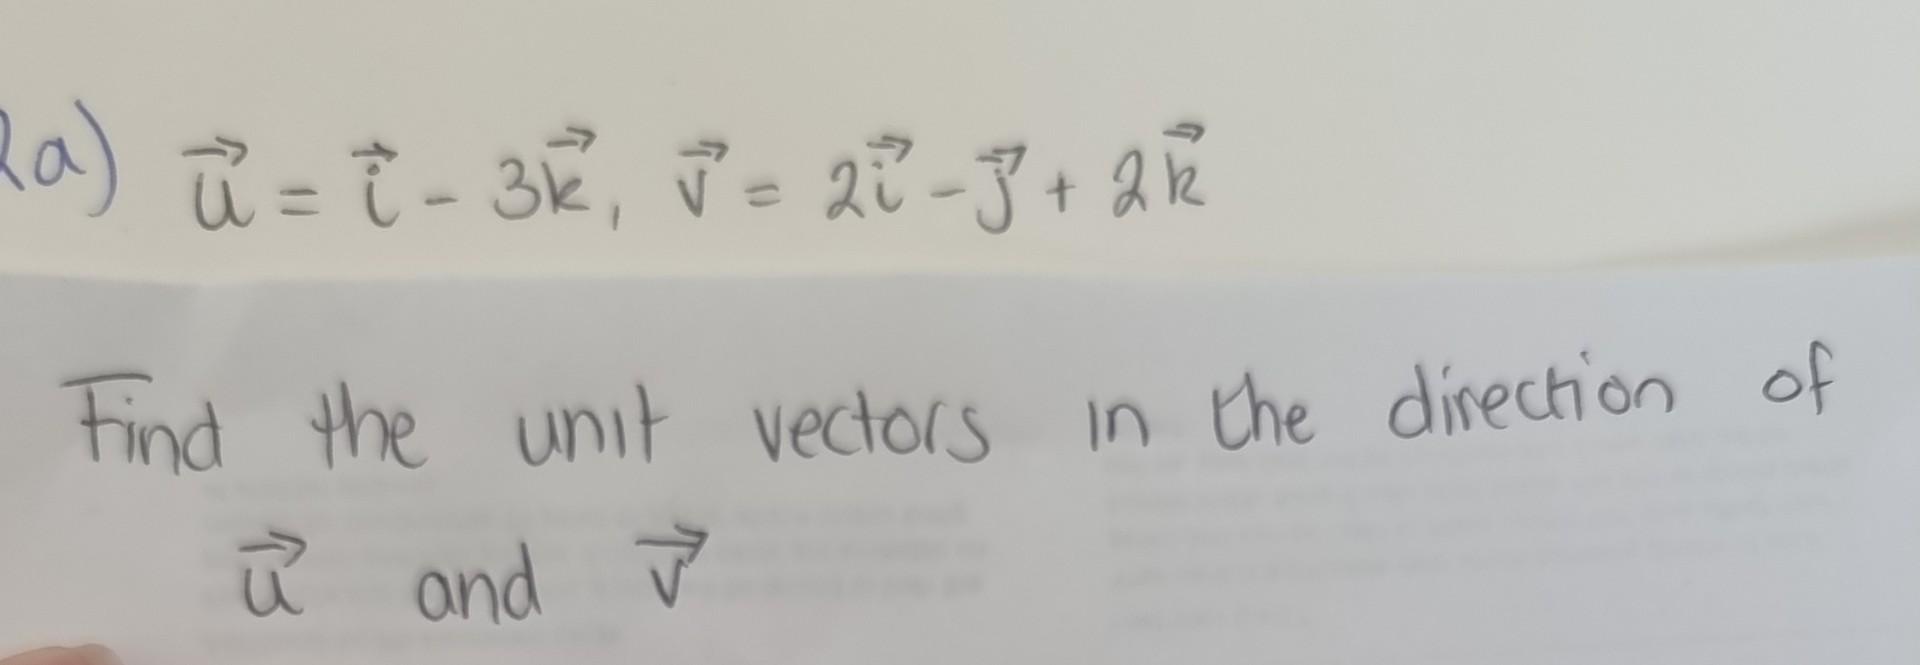 2a) u⃗ = i⃗ - 3k⃗, v⃗ = 2i⃗ - j⃗ + 2k⃗
Find the unit vectors in the direction of
u⃗ and v⃗